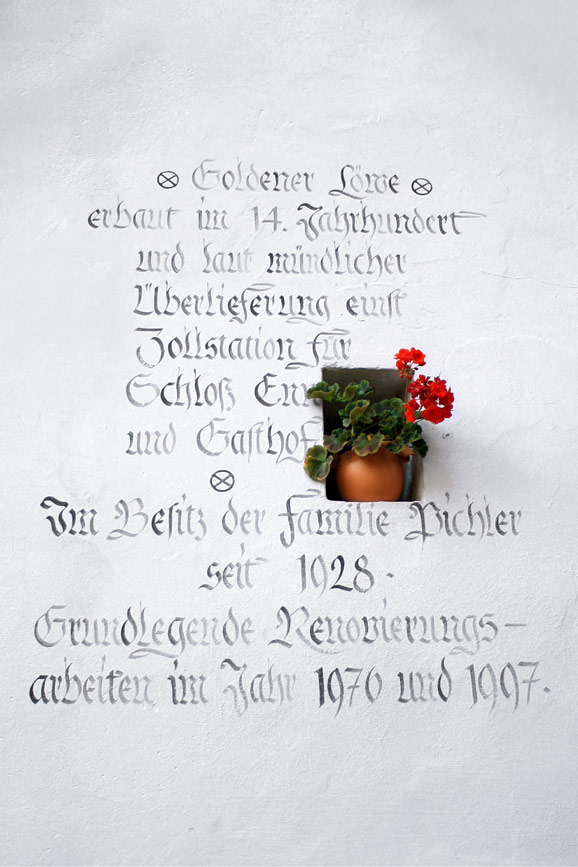 Goldener Löwe
erbaut im 14. Jahrhundert
und laut mündlicher
Überlieferung einst
Zollstation für
Schloß Enn
und Gasthof
Im Besitz der Familie Pichler
seit 1928.
Grundlegende Renovierungs-
arbeiten im Jahr 1976 und 1997.